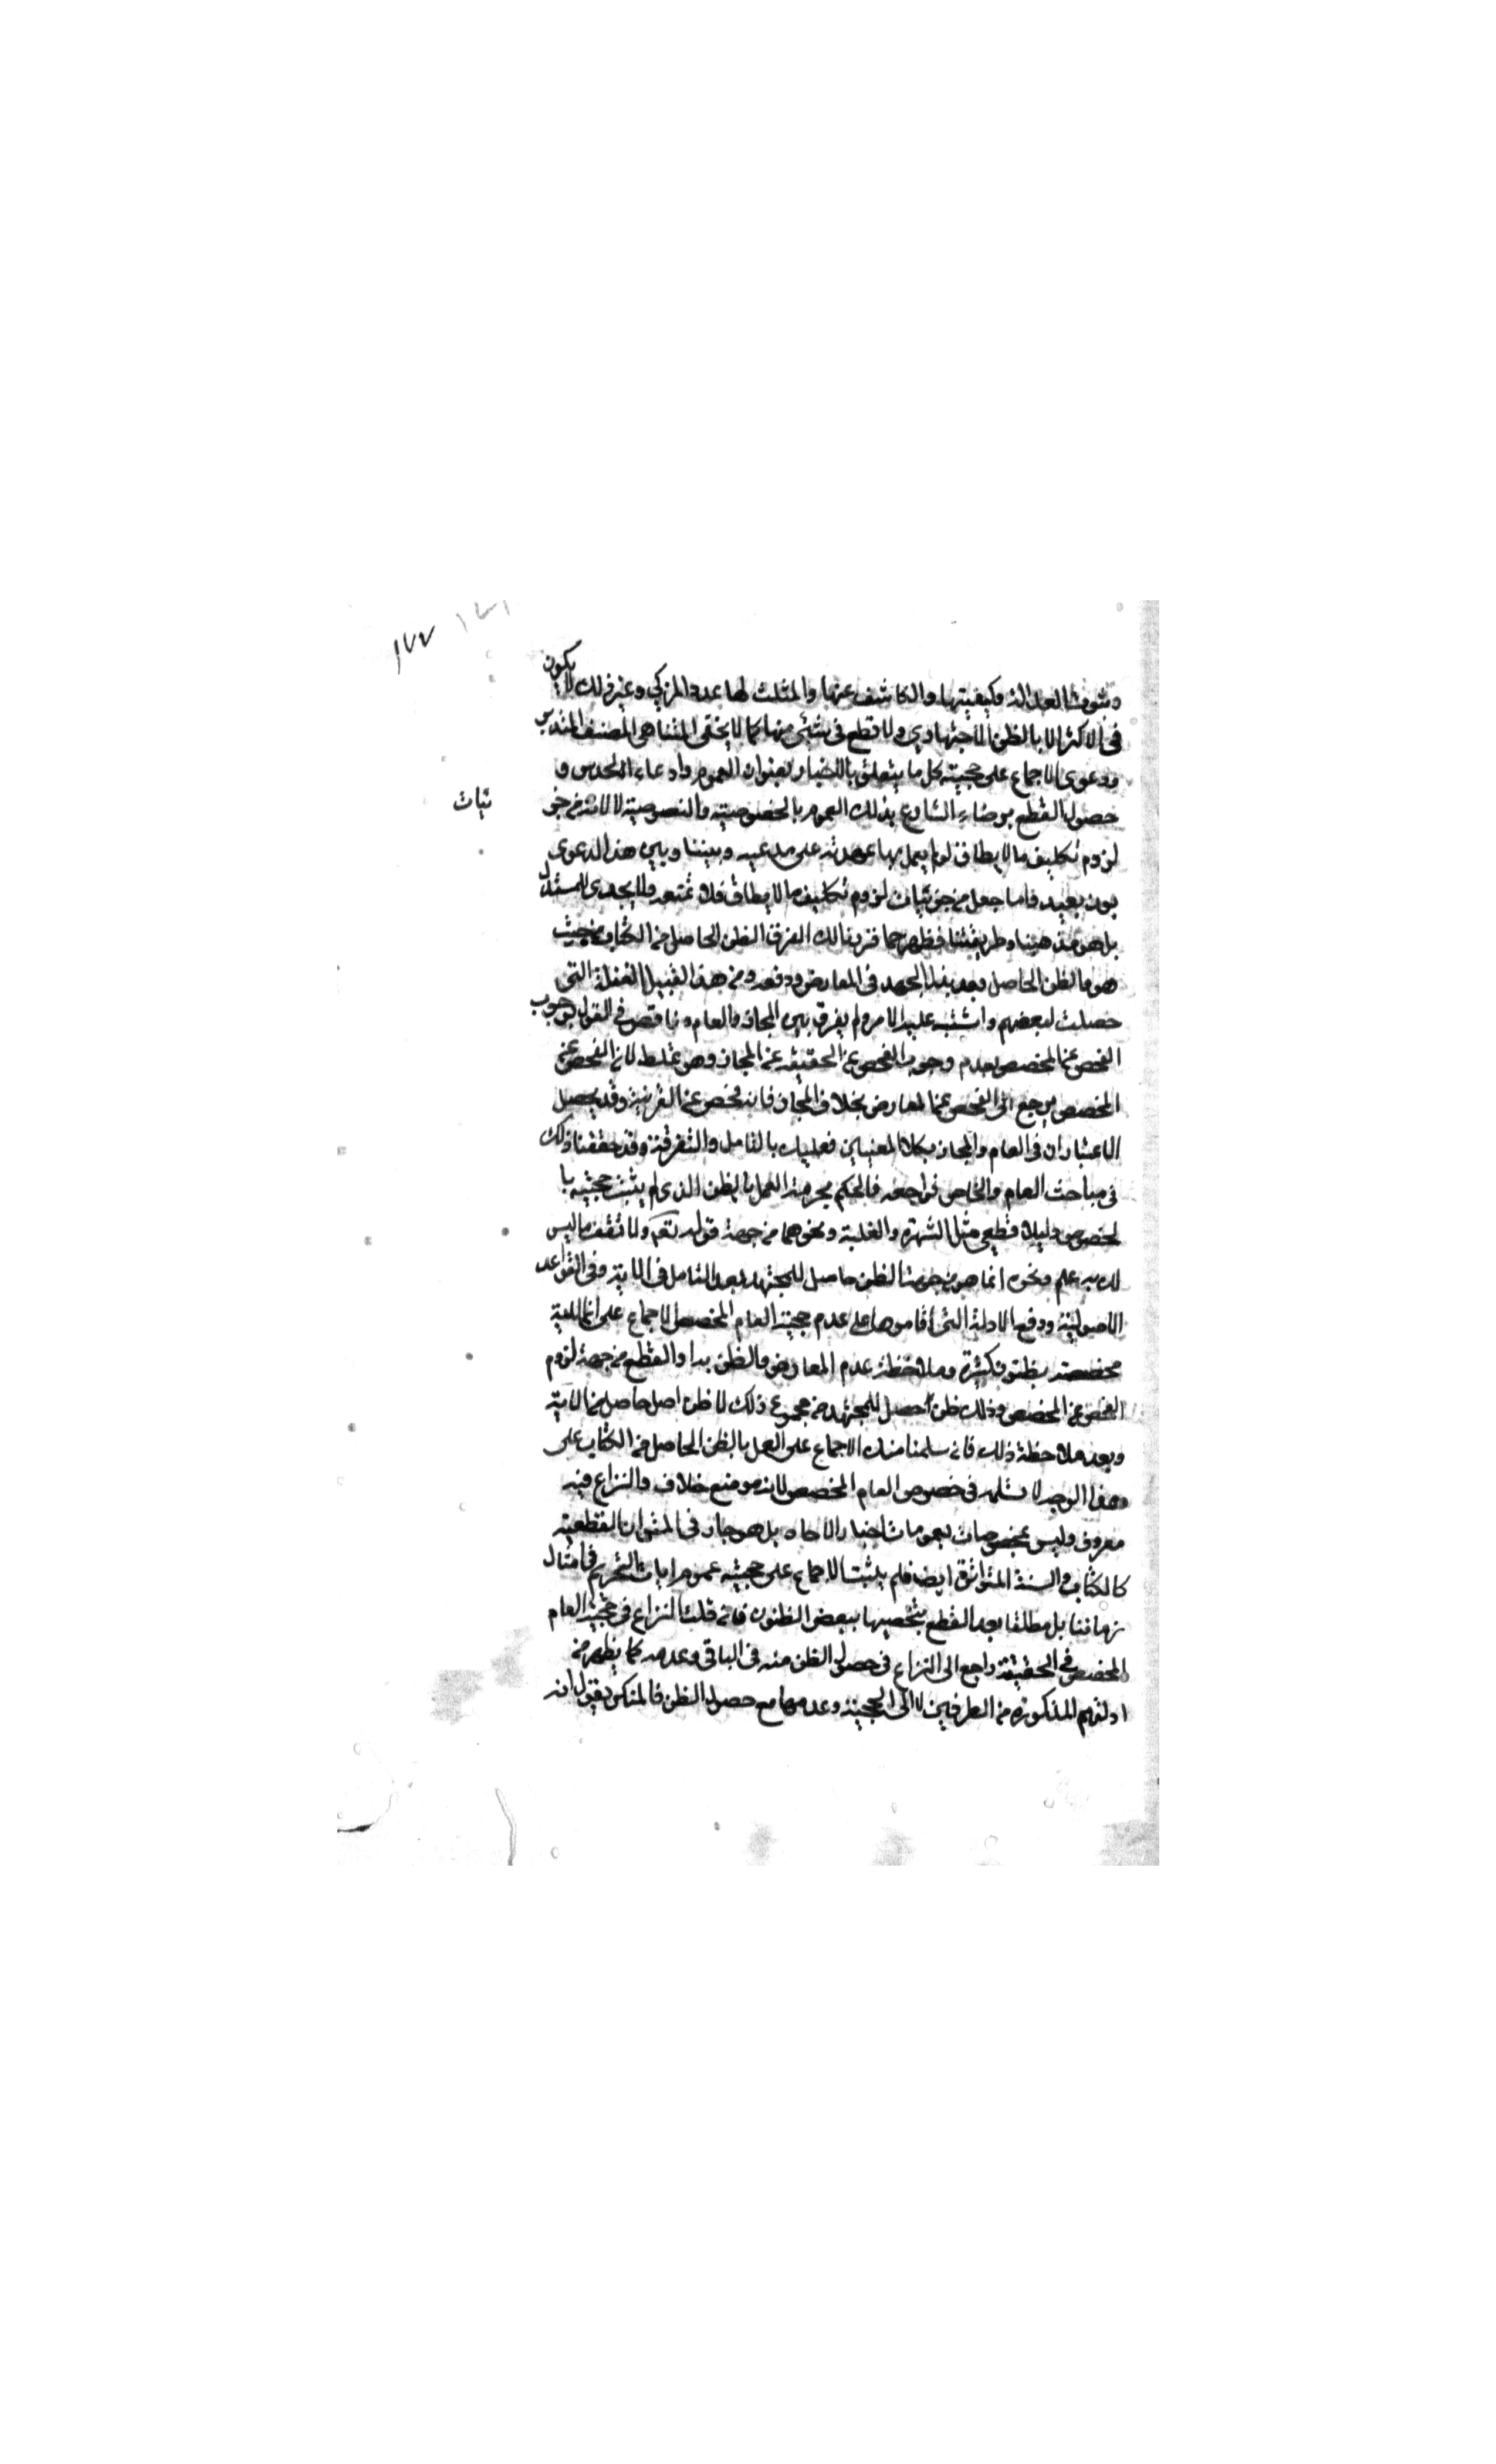 ١٧٧
وثبوت العدالة وكيفيتها والكاشف عنها والمثبت لها عدد المزكي وغير ذلك لا يكون
في الاكثر الا بالظن الاجتهادي ولا قطع في شيء منها كما لا يخفى المتناهي المصنف المتدبر
ودعوى الاجماع على حجية كل ما يتعلق بالاخبار بعنوان العموم وادعاء الحدس و
حصول القطع برضاء الشارع بذلك العموم بالخصوصية والنصوصية لا لانه من جز
ئيات
لزوم تكليف ما لا يطاق لو لم يعمل بها عهدته على مدعيه وبيننا وبين هذا الدعوى
بون بعيد واما جعل من جزئيات لزوم تكليف ما لا يطاق فلا نمنعه ولا يجدي للمستدل
بل هو مذهبنا وطريقتنا فظهر مما قررنا لك الفرق الظن الحاصل من الكتاب من حيث
هو والظن الحاصل بعد بذل الجهد في المعارض ودفعه ومن هذا القبيل الغفلة التي
حصلت لبعضهم واشتبه عليه الامر ولم يفرق بين المجاز والعام وناقض في القول بوجوب
الفحص عن المخصص بعدم وجوب الفحص عن الحقيقة عن المجاز وهو غلط لان الفحص عن
المخصص يرجع الى الفحص عن المعارض بخلاف المجاز فانه فحص عن القرينة وقد يحصل
الاعتباران في العام والمجاز بكلا المعنيين فعليك بالتامل والتفرقة وقد حققنا ذلك
في مباحث العام والخاص فراجعه فالحكم بحرمة العمل بالظن الذي لم يثبت حجيته با
لخصوص دليلا قطعي مثل الشهرة والغلبة ونحوهما من جهة قوله تعم ولا تقف ما ليس
لك به علم ونحوه انما هو من جهة الظن حاصل للمجتهد بعد التامل في الاية وفي القواعد
الاصولية ودفع الادلة التي اقاموها على عدم حجية العام المخصص للاجماع على ان الاية
مخصصة بظنون كثيرة وملاحظة عدم المعارض والظن بدا والقطع من جهة لزوم
الفحص عن المخصص وذلك ظن حصل للمجتهد من مجموع ذلك لا ظن اصل حاصل من الاية
وبعد ملاحظة ذلك فان سلمنا منك الاجماع على العمل بالظن الحاصل من الكتاب على
هذا الوجه لا نسلمه في خصوص العام المخصص لانه موضع خلاف والنزاع فيه
معروف وليس بخصوصات بعمومات اخبار الاحاد بل هو جار في المتواترات القطعية
كالكتاب والسنة المتواترة ايضا فلم يثبت الاجماع على حجية عموم ايات التحريم في امثال
زماننا بل مطلقا بعد القطع بتخصيصها ببعض الظنون فان قلت النزاع في حجية العام
المخصص في الحقيقة راجع الى النزاع في حصول الظن منه في الباقي وعدمه كما يظهر من
ادلتهم المذكورة من الطرفين لا الى الحجية وعدمها مع حصول الظن فالمنكر يقول انه